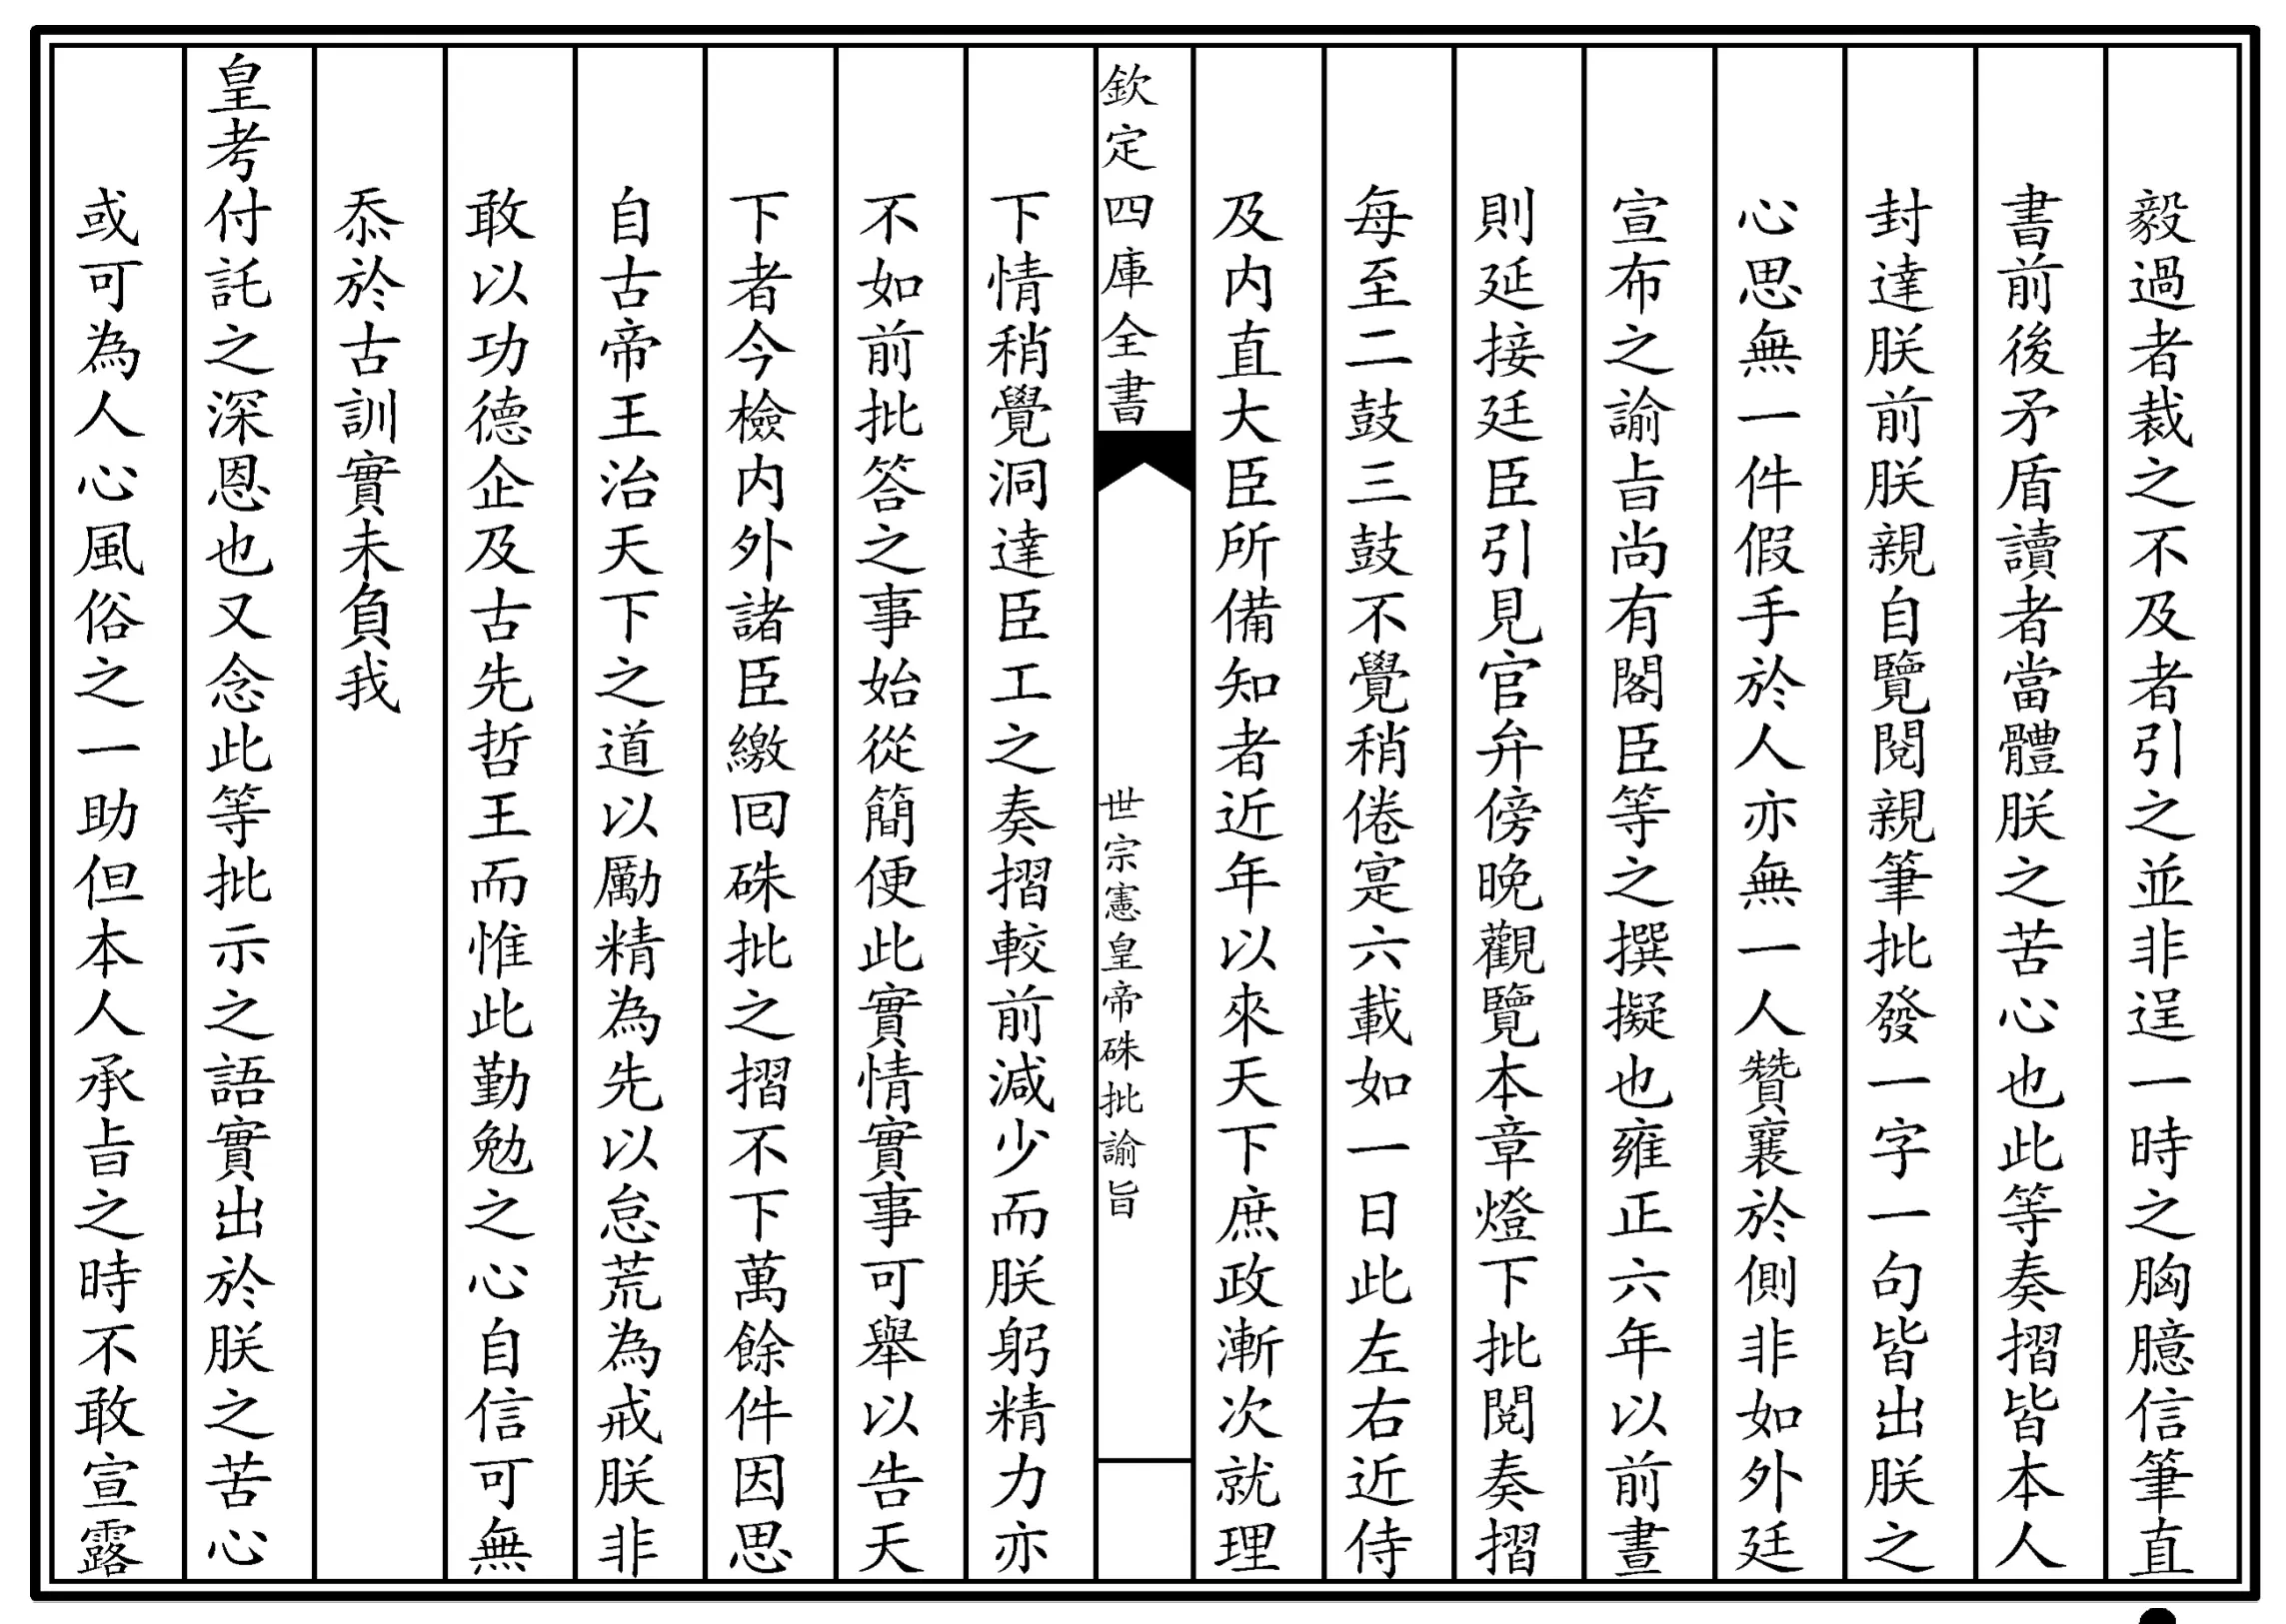 毅過者裁之不及者引之並非逞一時之胸臆信筆直
書前後矛盾讀者當體朕之苦心也此等奏摺皆本人
封達朕前朕親自覽閱親筆批發一字一句皆出朕之
心思無一件假手於人亦無一人贊襄於側非如外廷
宣布之諭㫖尚有閣臣等之撰擬也雍正六年以前晝
則延接廷臣引見官弁傍晚觀覽本章燈下批閱奏摺
每至二鼓三鼓不覺稍倦寔六載如一日此左右近侍
及内直大臣所備知者近年以來天下庶政漸次就理
欽定四庫全書
世宗憲皇帝硃批諭旨
下情稍覺洞達臣工之奏摺較前減少而朕躬精力亦
不如前批答之事始從簡便此實情實事可舉以告天
下者今檢内外諸臣繳回硃批之摺不下萬餘件因思
自古帝王治天下之道以勵精為先以怠荒為戒朕非
敢以功德企及古先哲王而惟此勤勉之心自信可無
忝於古訓實未負我
皇考付託之深恩也又念此等批示之語實出於朕之苦心
或可為人心風俗之一助但本人承㫖之時不敢宣露